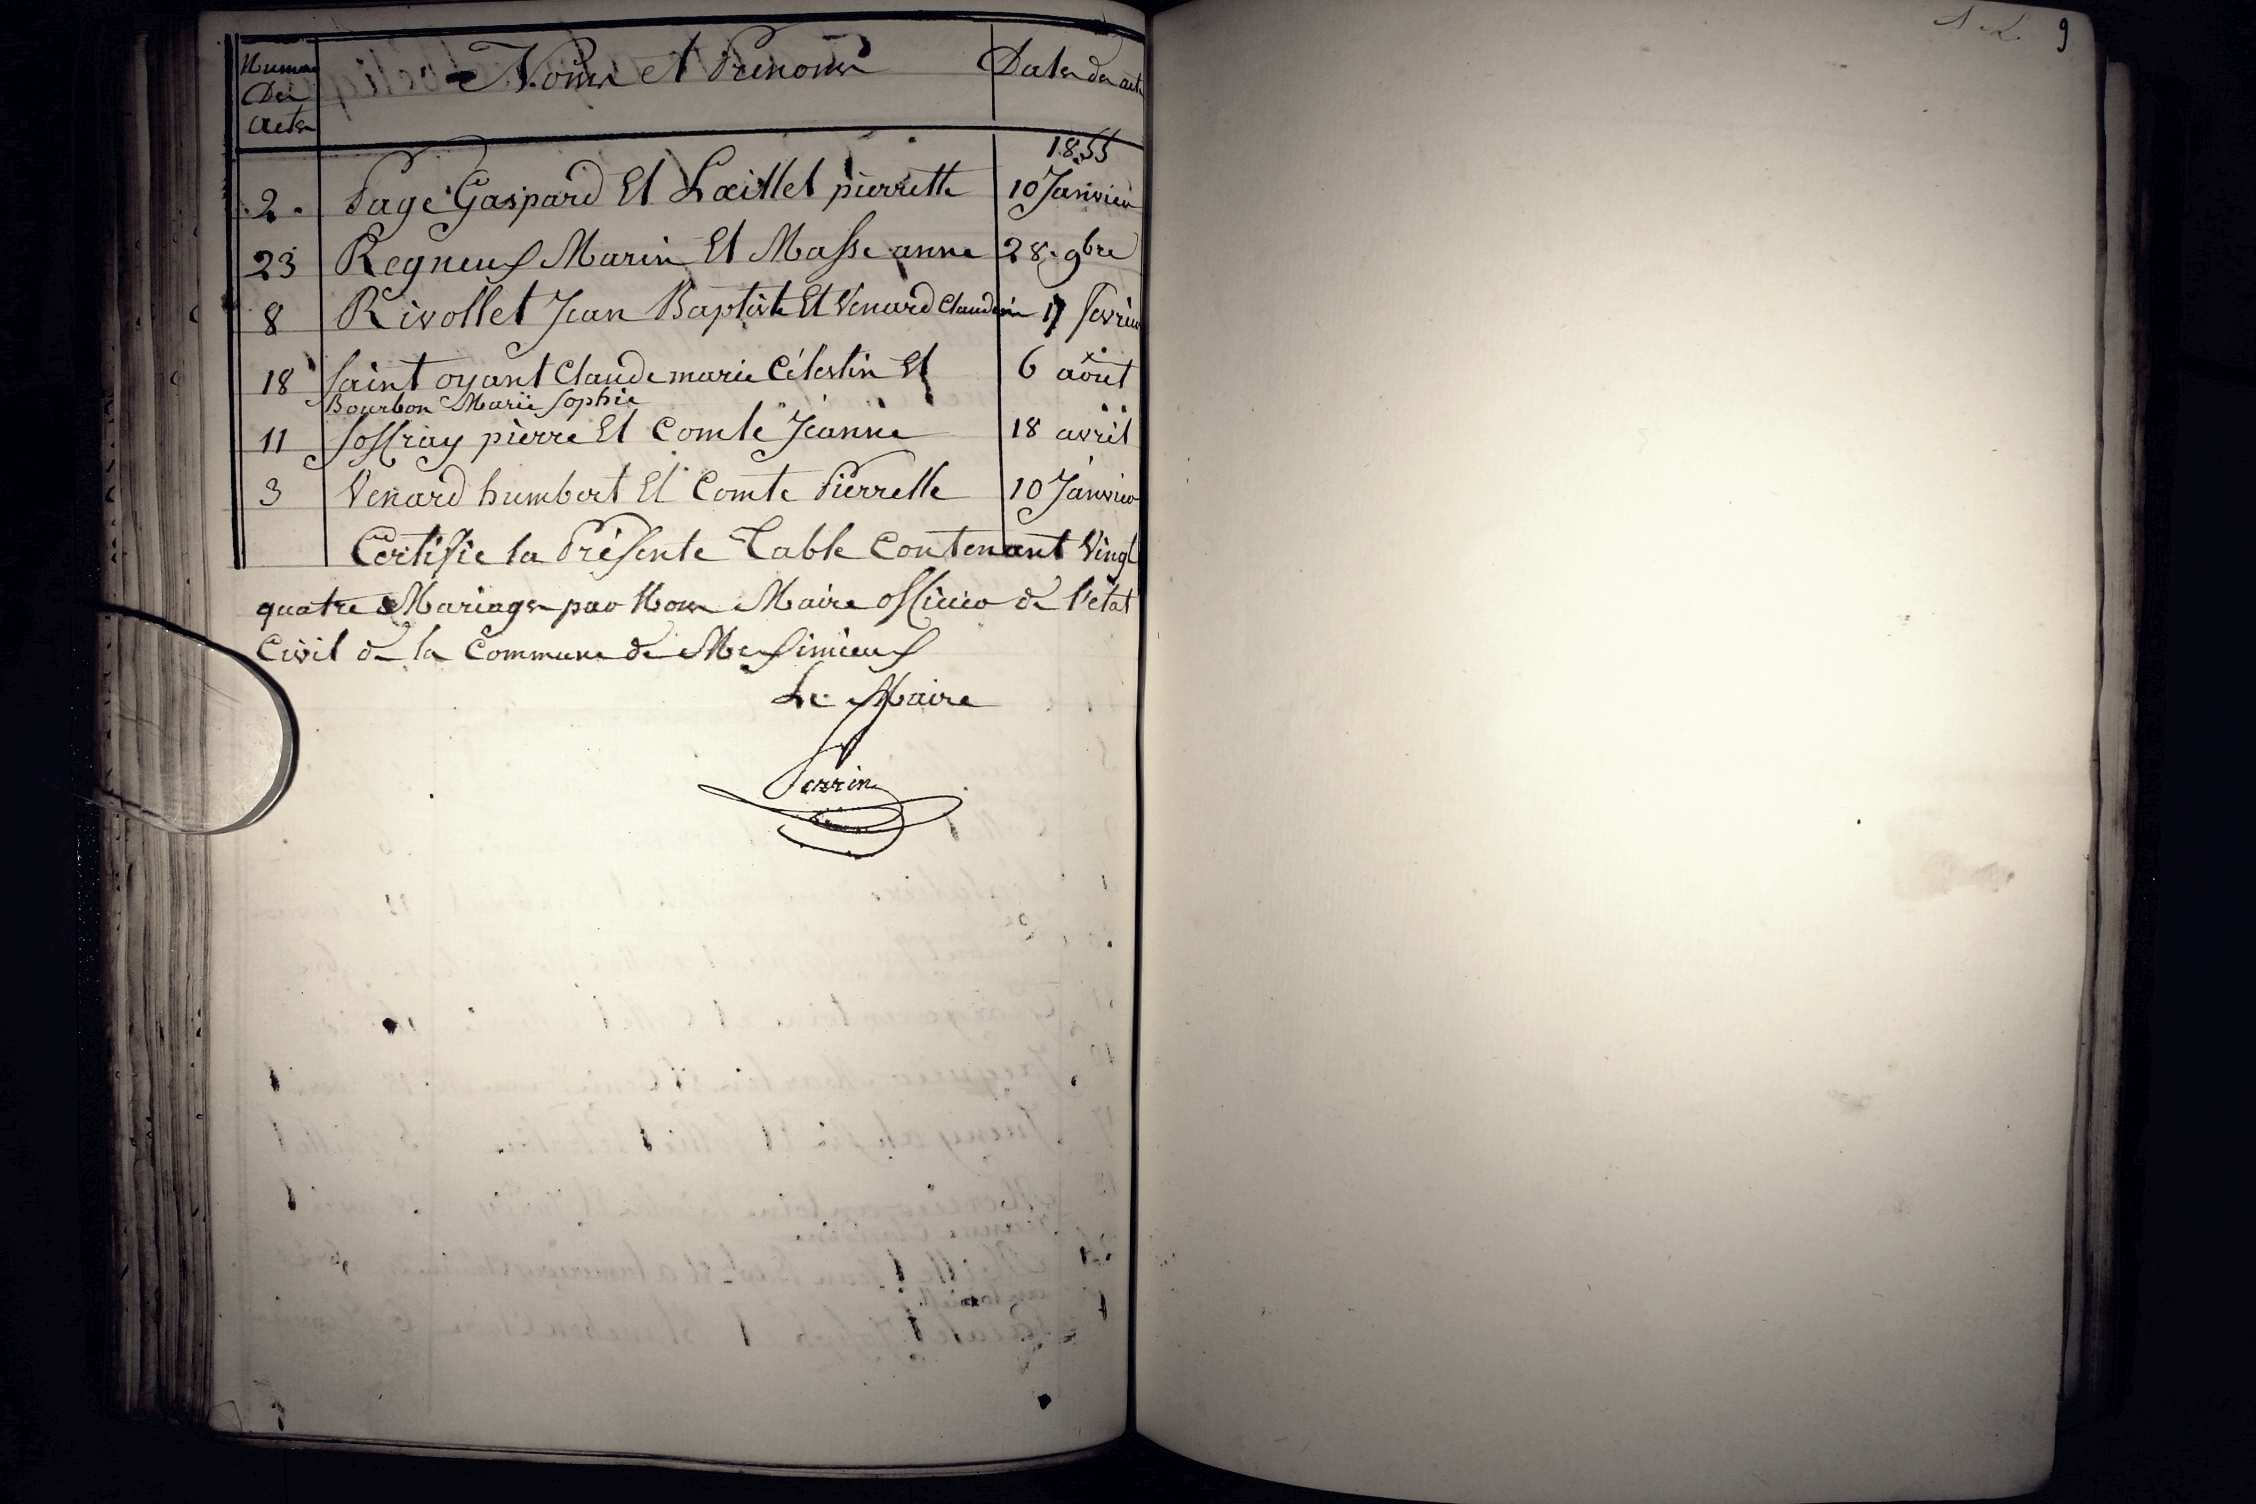 Numero Des actes | Noms et Prenoms | Dates des actes
1855
2. Page Gaspard Et Lœillet pierrette 10 Janvier
23 Regneux Marin Et Masse anne 28. 9bre
8 Rivollet Jean Baptiste Et Venard Claudine 17 fevrier
18 saint oyant Claude marie Célestin Et 6 août
Bourbon Marie sophie
11 soffray pierre Et comte Jeanne 18 avril
3 Venard humbert Et Comte Pierrette 10 Janvier
Certifie la Présente Table contenant Vingt
quatre Mariages par Nous Maire officier de l'état
Civil de la Commune de Messimieux
Le Maire
Perrin
9